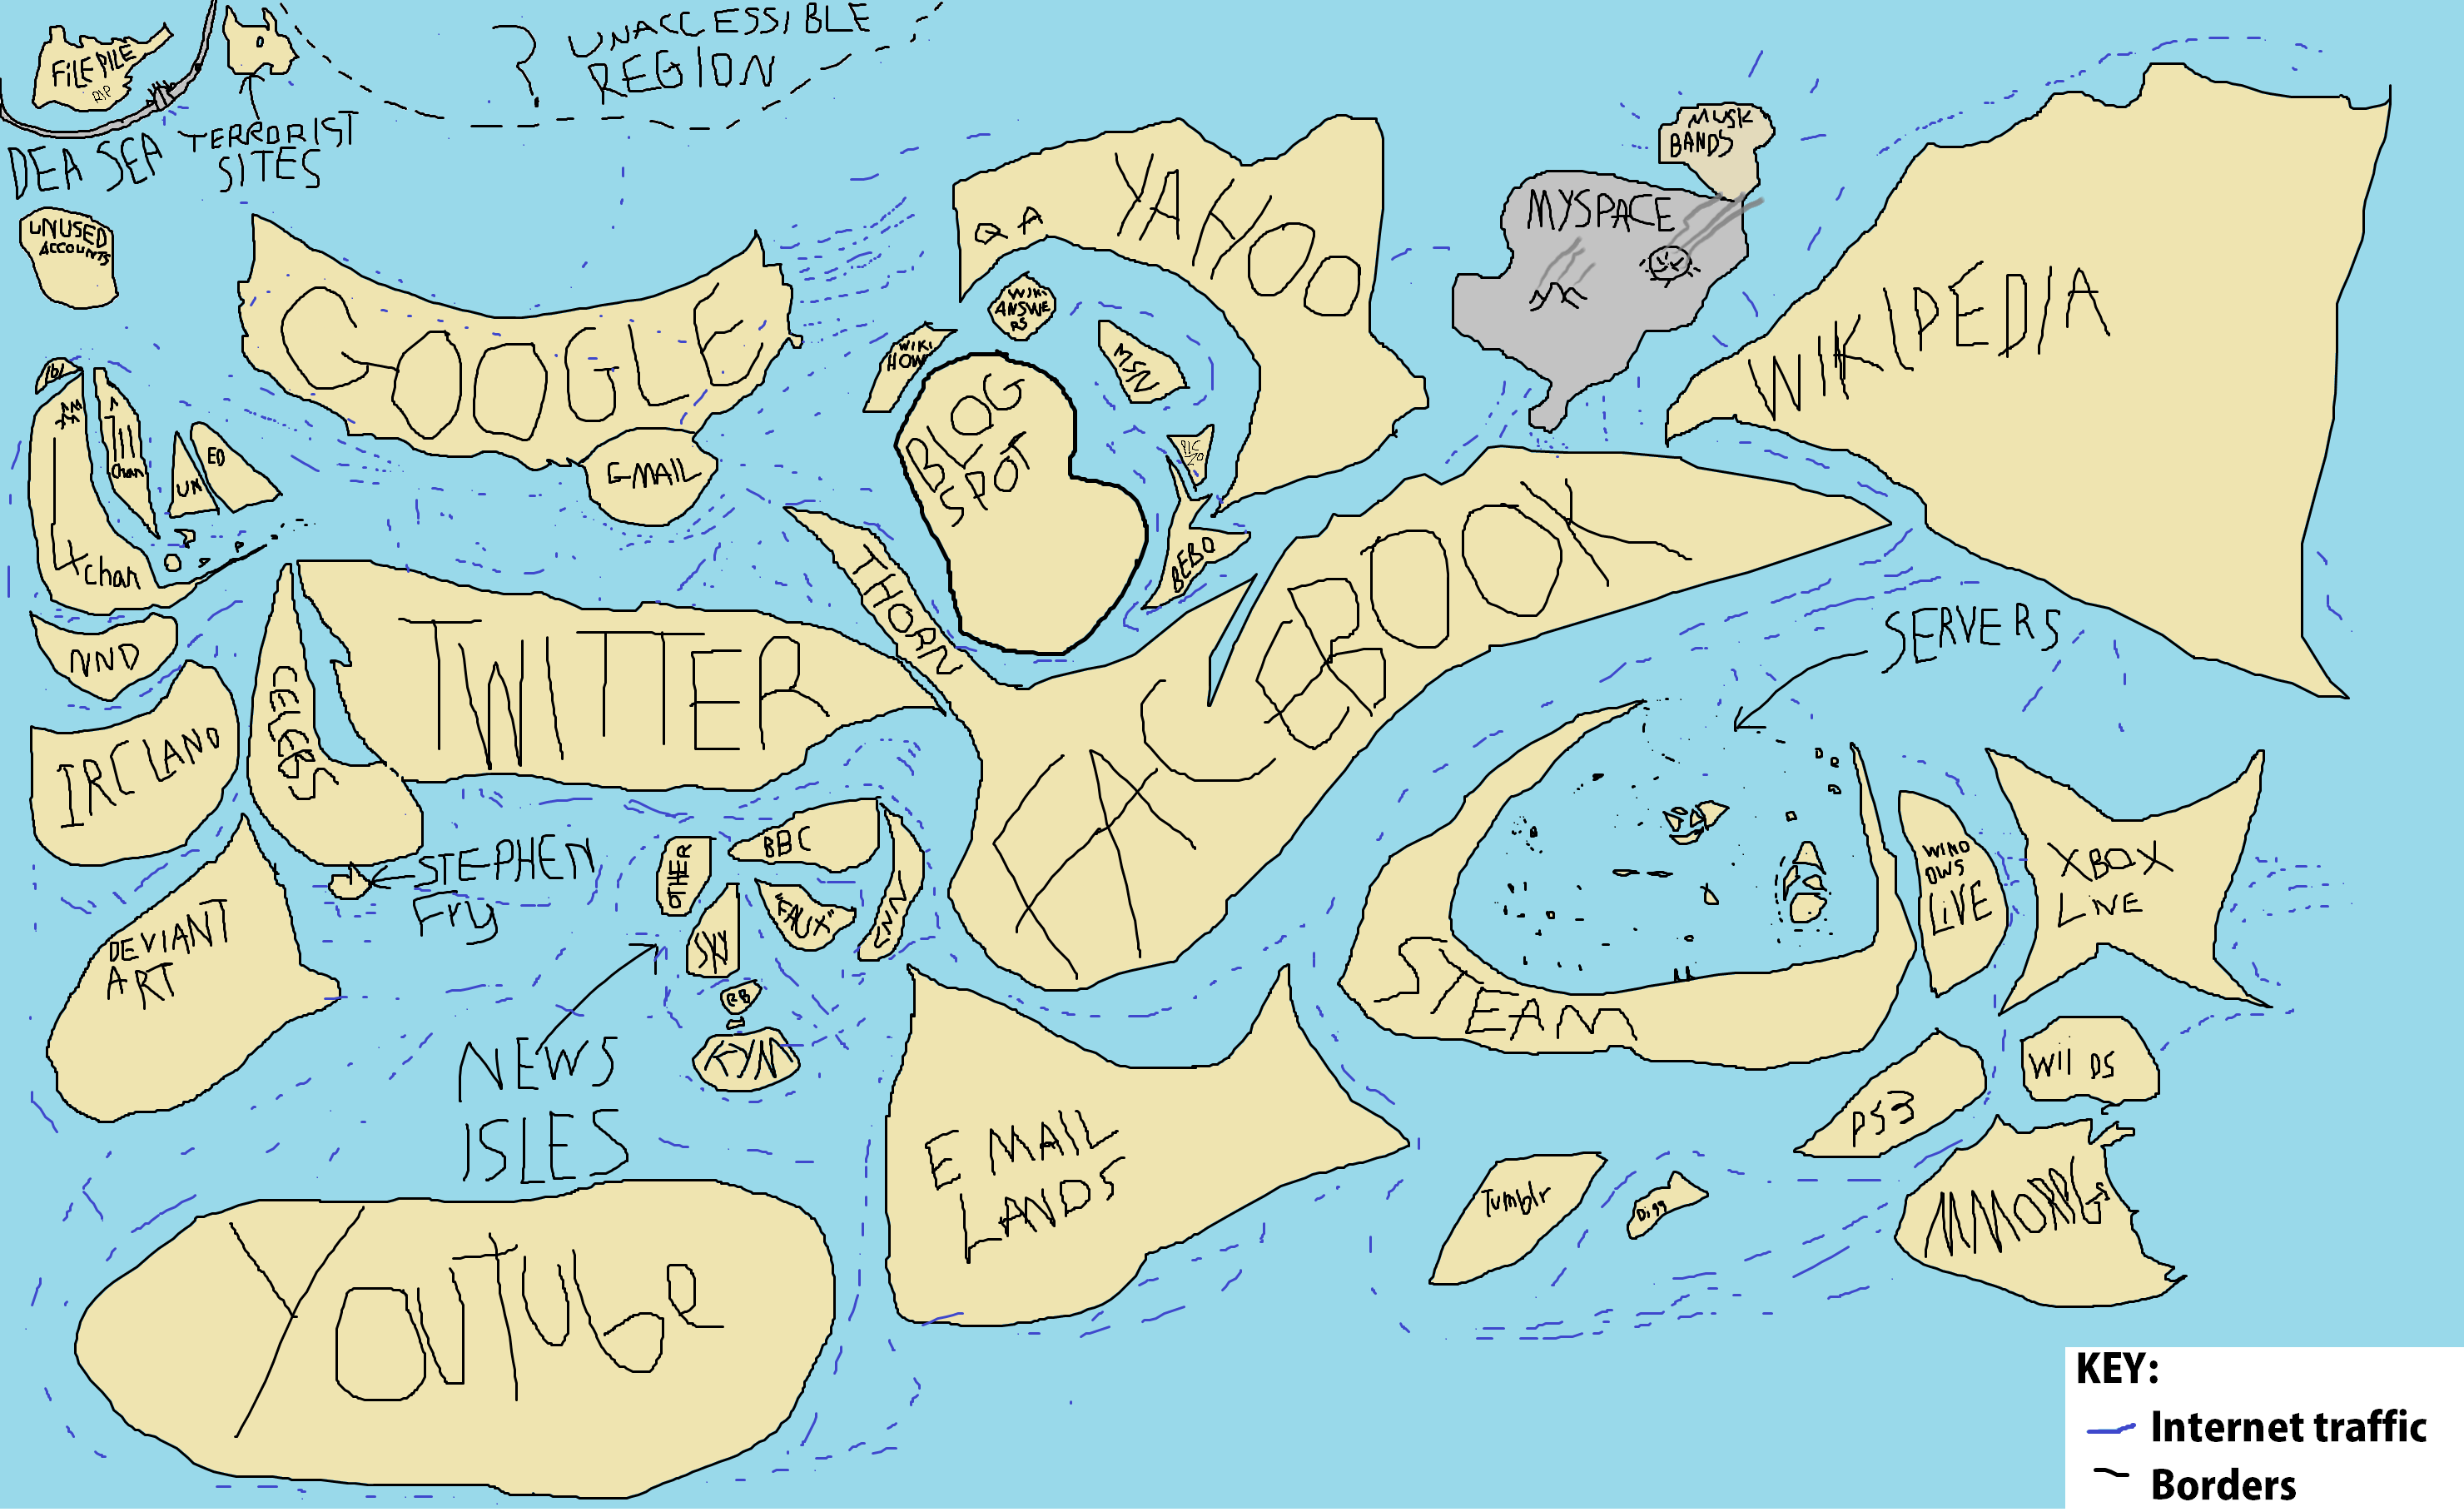 ? UNACCESSIBLE
REGION
FILE PILE
RIP
DEA SEA
TERRORIST
SITES
UNUSED
ACCOUNTS
GOOGLE
G-MAIL
YAHOO
Q A
WIKI
ANSWE
RS
WIKI
HOW
MSN
BLOG
SPOT
BEBO
MUSK
BANDS
MYSPACE
WIKIPEDIA
/b/
711
chan
UN
ED
4chan
NND
IRC LAND
CELEBS
TWITTER
THORN
FACEBOOK
SERVERS
STEPHEN
Fry
DEVIANT
ART
OTHER
BBC
"FAUX"
CNN
SKY
RB
KYM
NEWS
ISLES
STEAM
WIND
OWS
LIVE
XBOX
LIVE
WII DS
PS3
MMORPGs
E MAIL
LANDS
Tumblr
Digg
YouTube
KEY:
Internet traffic
Borders